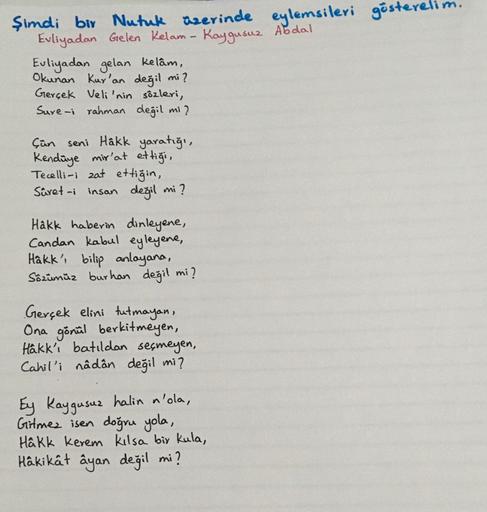 Şimdi bir Nutuk üzerinde eylemsileri gösterelim.
Evliyadan Gelen Kelam - Kaygusuz Abdal
Evliyadan gelan kelâm,
Okunan Kur'an değil mi?
Gerçek Veli'nin sözleri,
Sure-i rahman değil mi?
Çün seni Hâkk yaratığı,
Kendüye mir'at ettiği,
Tecelli-i zat ettiğin,
Sûret-i insan değil mi?
Hâkk haberin dinleyene,
Candan kabul eyleyene,
Hâkk'ı bilip anlayana,
Sözümüz burhan değil mi?
Gerçek elini tutmayan,
Ona gönül berkitmeyen,
Hâkk'ı batıldan seçmeyen,
Cahil'i nâdân değil mi?
Ey Kaygusuz halin n'ola,
Gitmez isen doğru yola,
Hâkk kerem kılsa bir kula,
Hâkikât âyan değil mi?